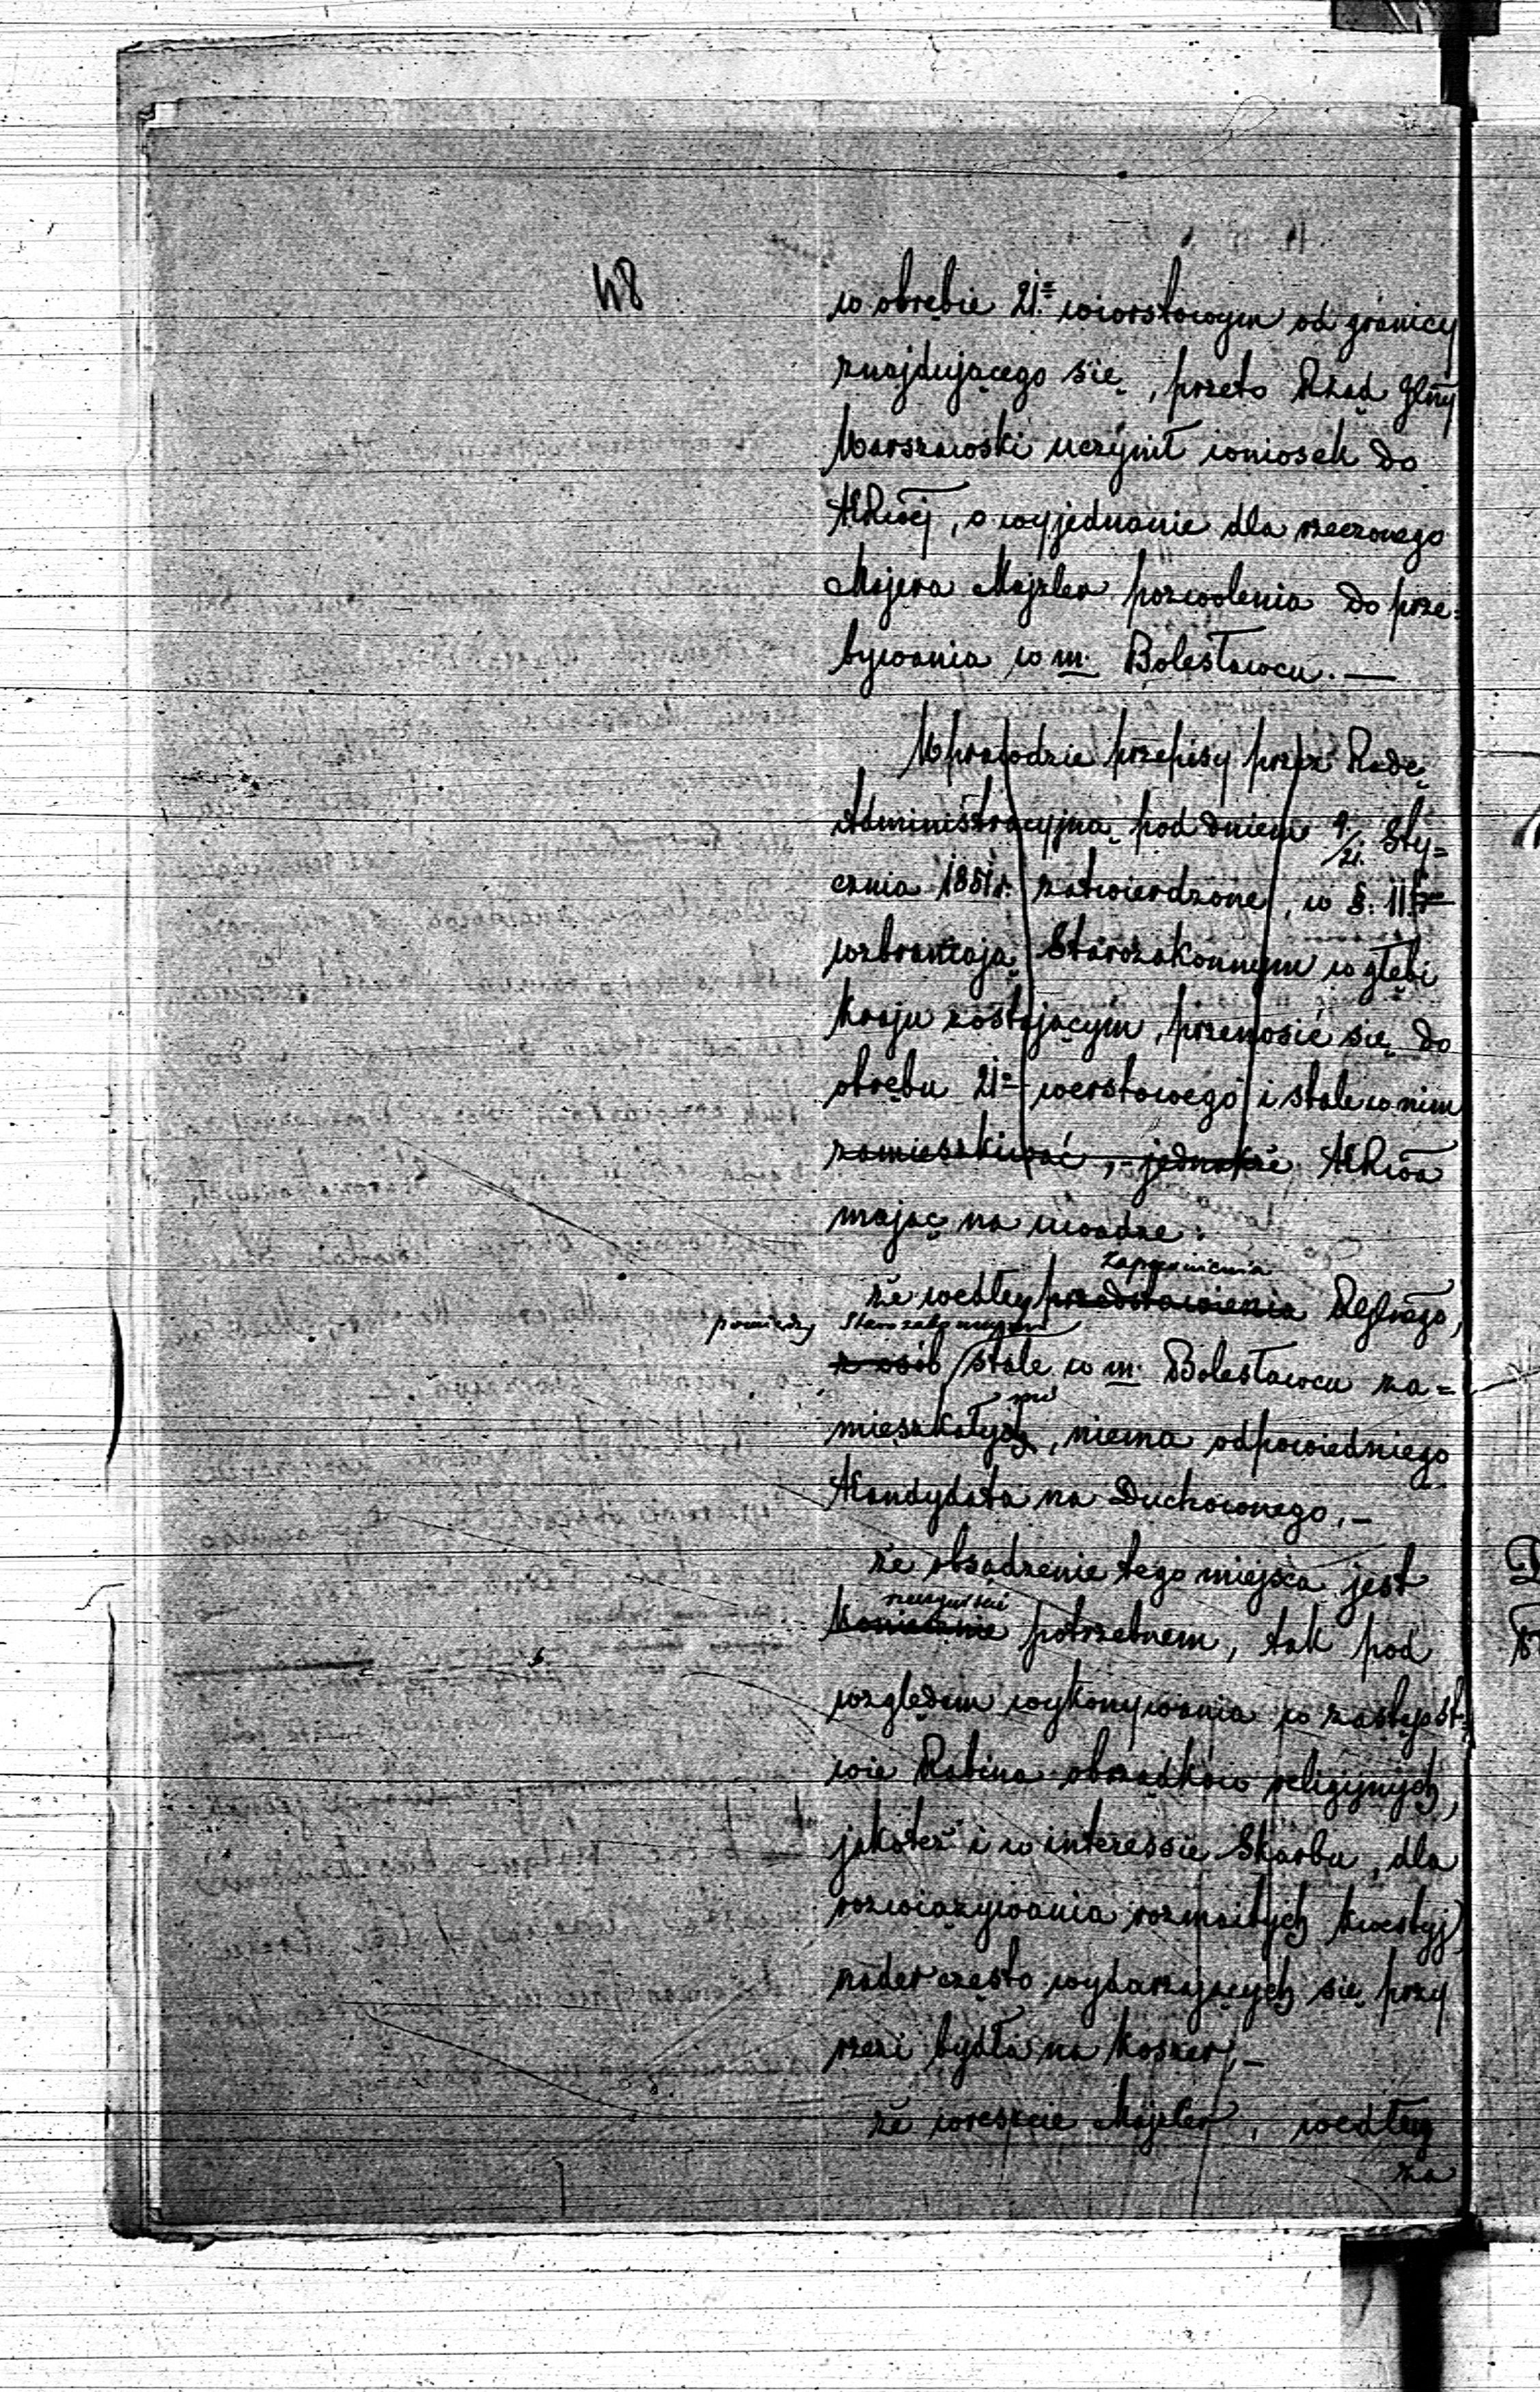 48
w obrębie 21= wiorstowym od granicy
znajdującego się, przeto Rząd Glny
Warszawski uczynił wniosek do
KRwej, o wyjednanie dla rzeczonego
Majera Majzler pozwolenia do prze=
bywania w m. Bolesławcu. —
Wprawdzie przepisy przez Radę
Administracyjną pod dniem 9/21. Sty=
cznia 1851 r. zatwierdzone, w §. 11
wzbraniają Starozakonnym w głębi
Kraju zostającym, przenosić się do
obrębu 21= werstowego i stale w nim
zamieszkiwać, - jednakże KRwa
mając na uwadze:
Zapewnienia
że według przedstawienia RGlnego,
pomiędzy Starozakonnymi
z osób stale w m. Bolesławcu za=
mi
mieszkałych, niema odpowiedniego
Kandydata na Duchownego, –
że obsadzenie tego miejsca jest
Koniecznie potrzebnem, tak pod
względem wykonywania w zastępst=
wie Rabina obrządków religijnych,
jakoteż i w interessie Skarbu, dla
rozwiązywania rozmaitych kwestyj
nader często wydarzających się przy
rzezi bydła na Koszer, –
że wreszcie Majzler, według
za